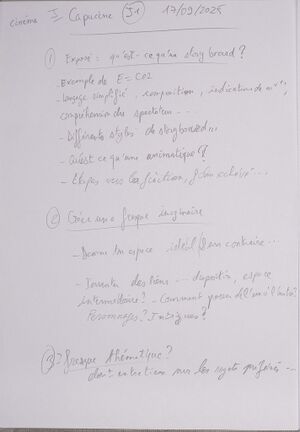 cinéma I Capucine J1 17/09/2025
① Exposé : qu'est-ce qu'un storyboard ?
- Exemple de E=CO2
- Langage simplifié, composition, indications de mvts,
compréhension du spectateur ...
- Différents styles de storyboards
- Qu'est ce qu'une animatique ?
- Etapes vers la fiction,
② Créer une fresque imaginaire
- Dessiner un espace idéal / son contraire ...
- Inventer des liens ... disposition, espace
intermédiaire ? - Comment passer de l'un à l'autre ?
Personnages ? Intrigues ?
③ ? fresque thématique ?
dont entretiens sur les sujets préférés ...